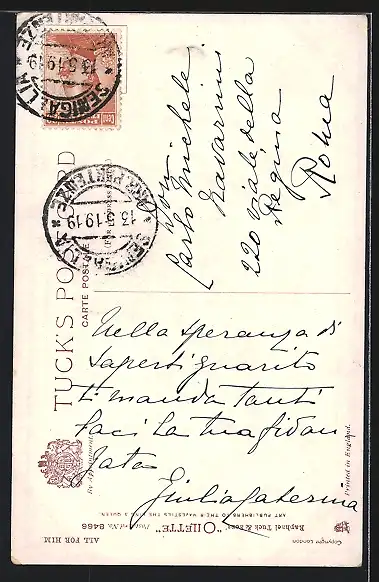 TUCK'S POST CARD
CARTE POSTALE
(FOR ADDRESS ONLY)
SENIGALLIA
13.5.19 19
PARTENZE
SENIGALLIA
13.5.19 19
PARTENZE
Carlo Michele
Navarrini
220 viale della
Regina
Roma
Nella speranza di
saperti guarito
ti manda tanti
baci la tua fidan
zata
Giulia Caterina
By Appointment.
Raphael Tuck & Sons' "OILETTE" Postcard No. 8466
ART PUBLISHERS TO THEIR MAJESTIES THE KING & QUEEN
ALL FOR HIM
Copyright London
Printed in England.